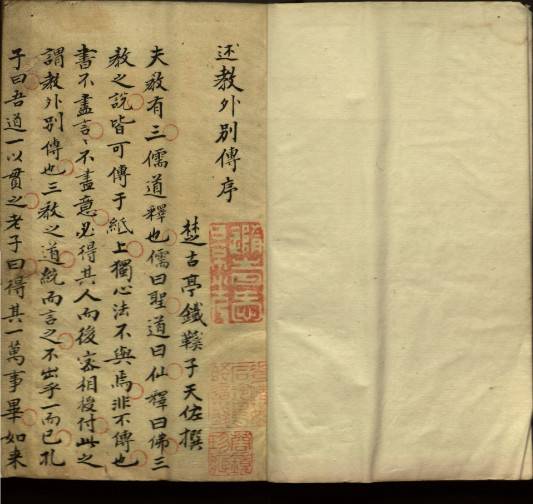 述教外別傳序
楚古亭鐵鞵子天佐撰
夫教有三儒道釋也儒曰聖道曰仙釋曰佛三
教之說皆可傳于紙上獨心法不與焉非不傳也
書不盡言〻不盡意必得其人而後密相授付此之
謂教外別傳也三教之道統而言之不出乎一而已孔
子曰吾道一以貫之老子曰得其一萬事畢如来